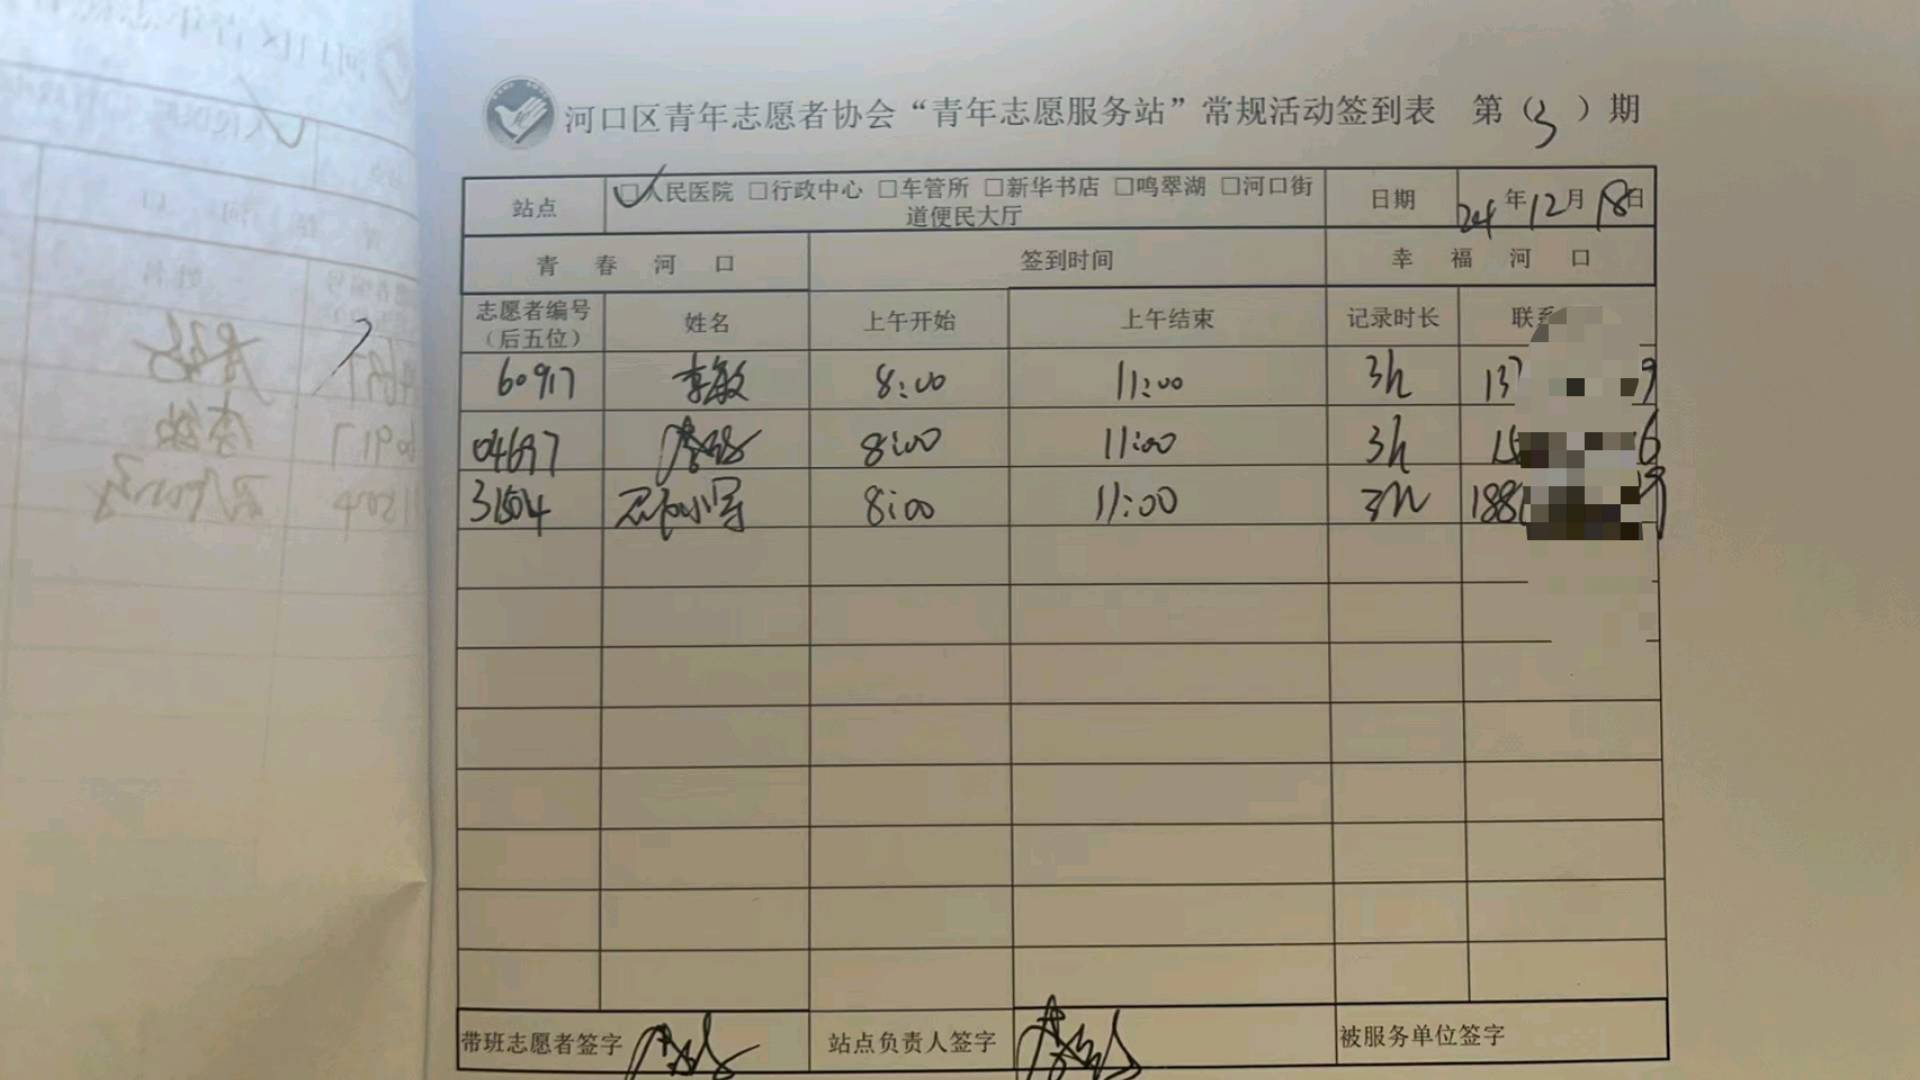 河口区青年志愿者协会“青年志愿服务站”常规活动签到表 第（3）期
站点 □人民医院 □行政中心 □车管所 □新华书店 □鸣翠湖 □河口街道便民大厅 日期 24年12月18日
青春河口 签到时间 幸福河口
志愿者编号（后五位） 姓名 上午开始 上午结束 记录时长 联系
60917 李敏 8:00 11:00 3h 137 9
04697 8:00 11:00 3h 15 6
31504 8:00 11:00 3h 188
带班志愿者签字 站点负责人签字 被服务单位签字